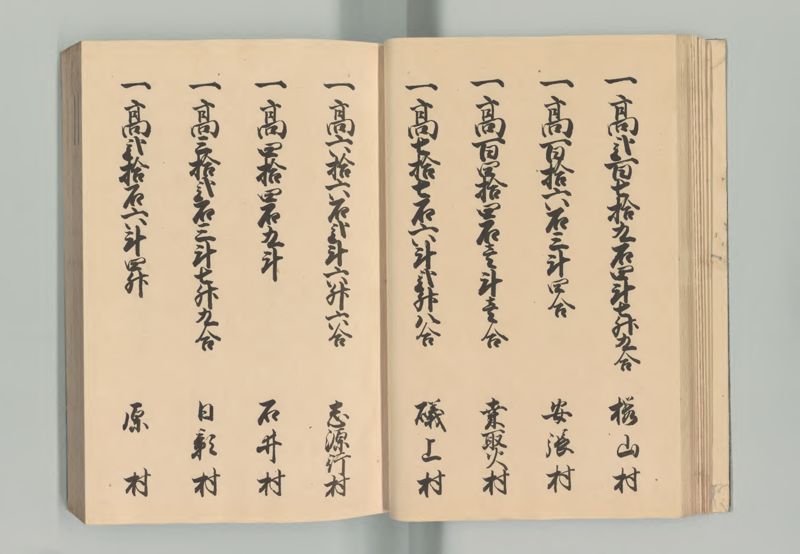 一高弐百七拾九石四斗七升九合 桜山村
一高百拾六石三斗四合 安張村
一高百四拾四石壱斗壱合 村
一高七拾七石六斗弐升八合 礒上村
一高六拾六石弐斗六升六合 志源行村
一高四拾四石九斗 石井村
一高三拾弐石三斗七升九合 日影村
一高弐拾石六斗四升 原村